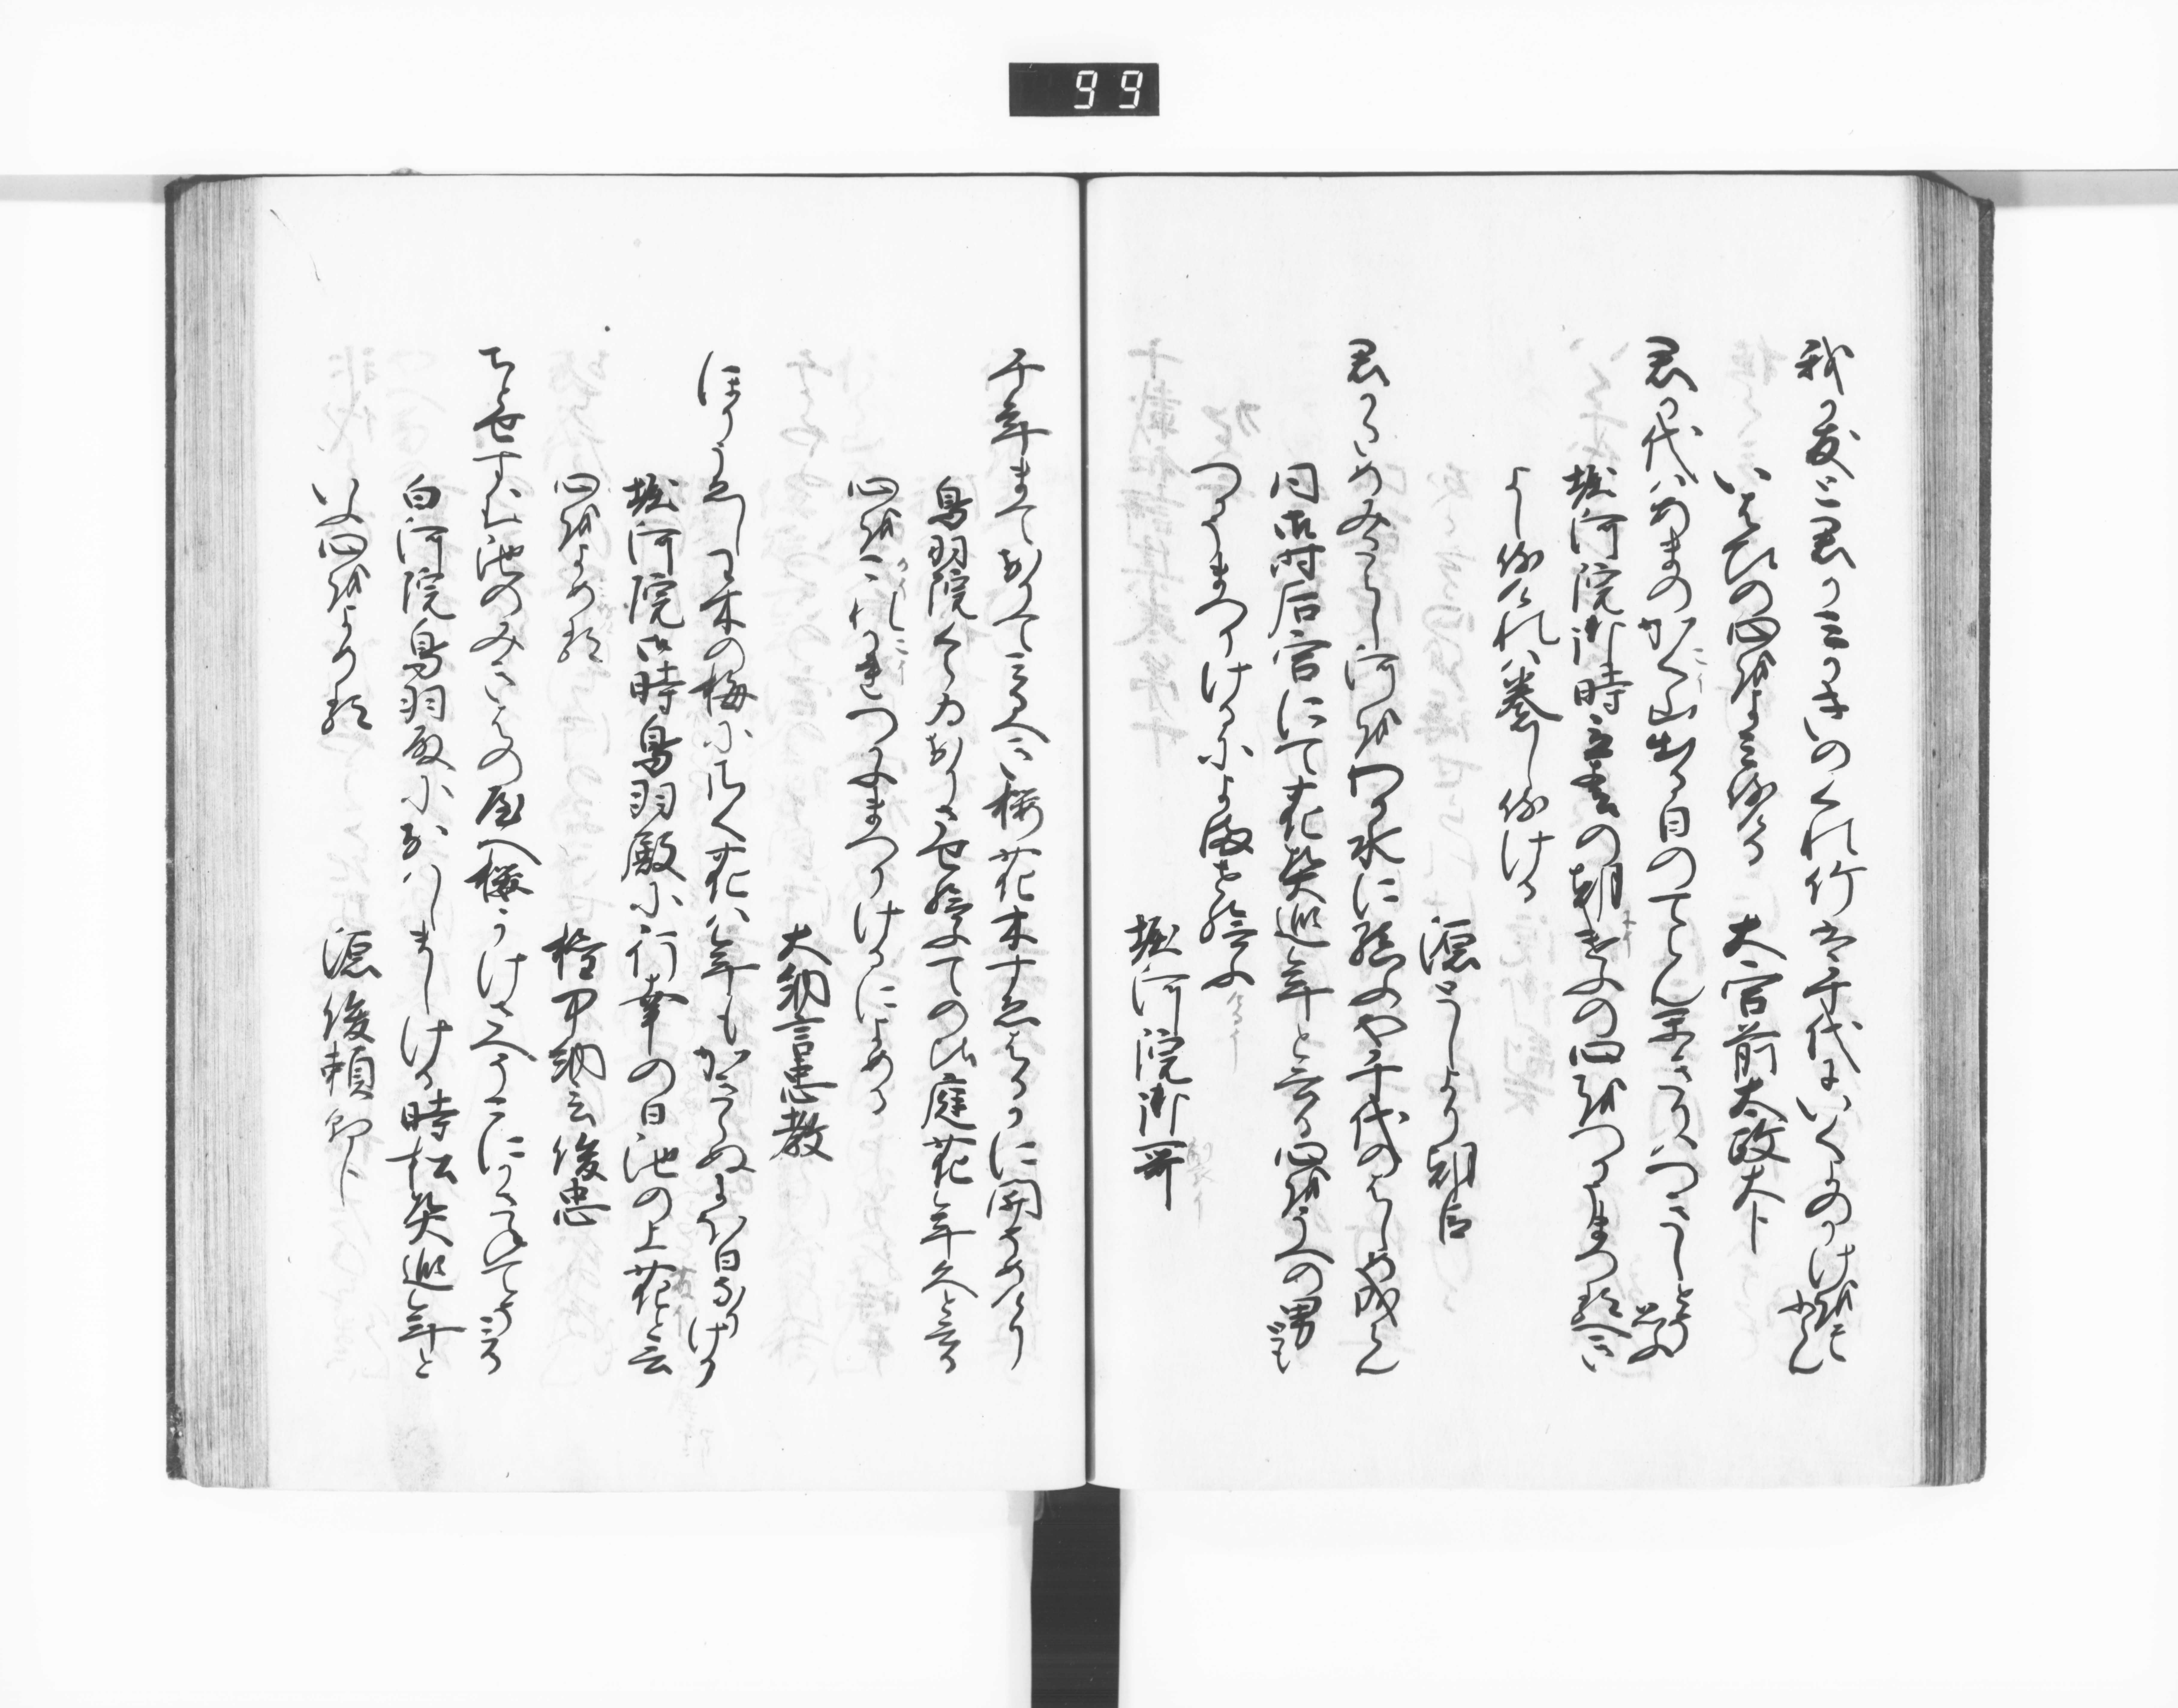 99
我か友と君かみかきのくれ竹は千代にいくよのかけをそふらん
いはひの心をよみ侍ける　大宮前太政大臣
君か代はあまのかく山出る日のてらんかきりはつきしとそ思ふ
堀河院御時立春の朝きふの心をつかまつる
よし侍けれは奉し侍ける
源とし頼朝臣
君か為みたらし河をわか水に結ふや千代のはしめ成らん
同御時后宮にて花契遐年と云る心をうへの男とも
つかうまつりけるによませ給ふ
堀河院御哥
千年まておりてみるへき桜花木すゑはるかに開そめにけり
鳥羽院くらゐおりさせ給ふての比庭花年久と云る
心をこれかれつかまつりけるによめる
大納言忠教
ほりうゑし玉木の梅に
堀河院御時鳥羽殿に行幸の日池の上花と云
心をよめる　権中納言俊忠
ちとせすむ池のみきはの八重桜かけさへそこにかさねてそみる
白河院鳥羽殿におはしましける時松契遐年と
いふ心をよめる　源俊頼朝臣